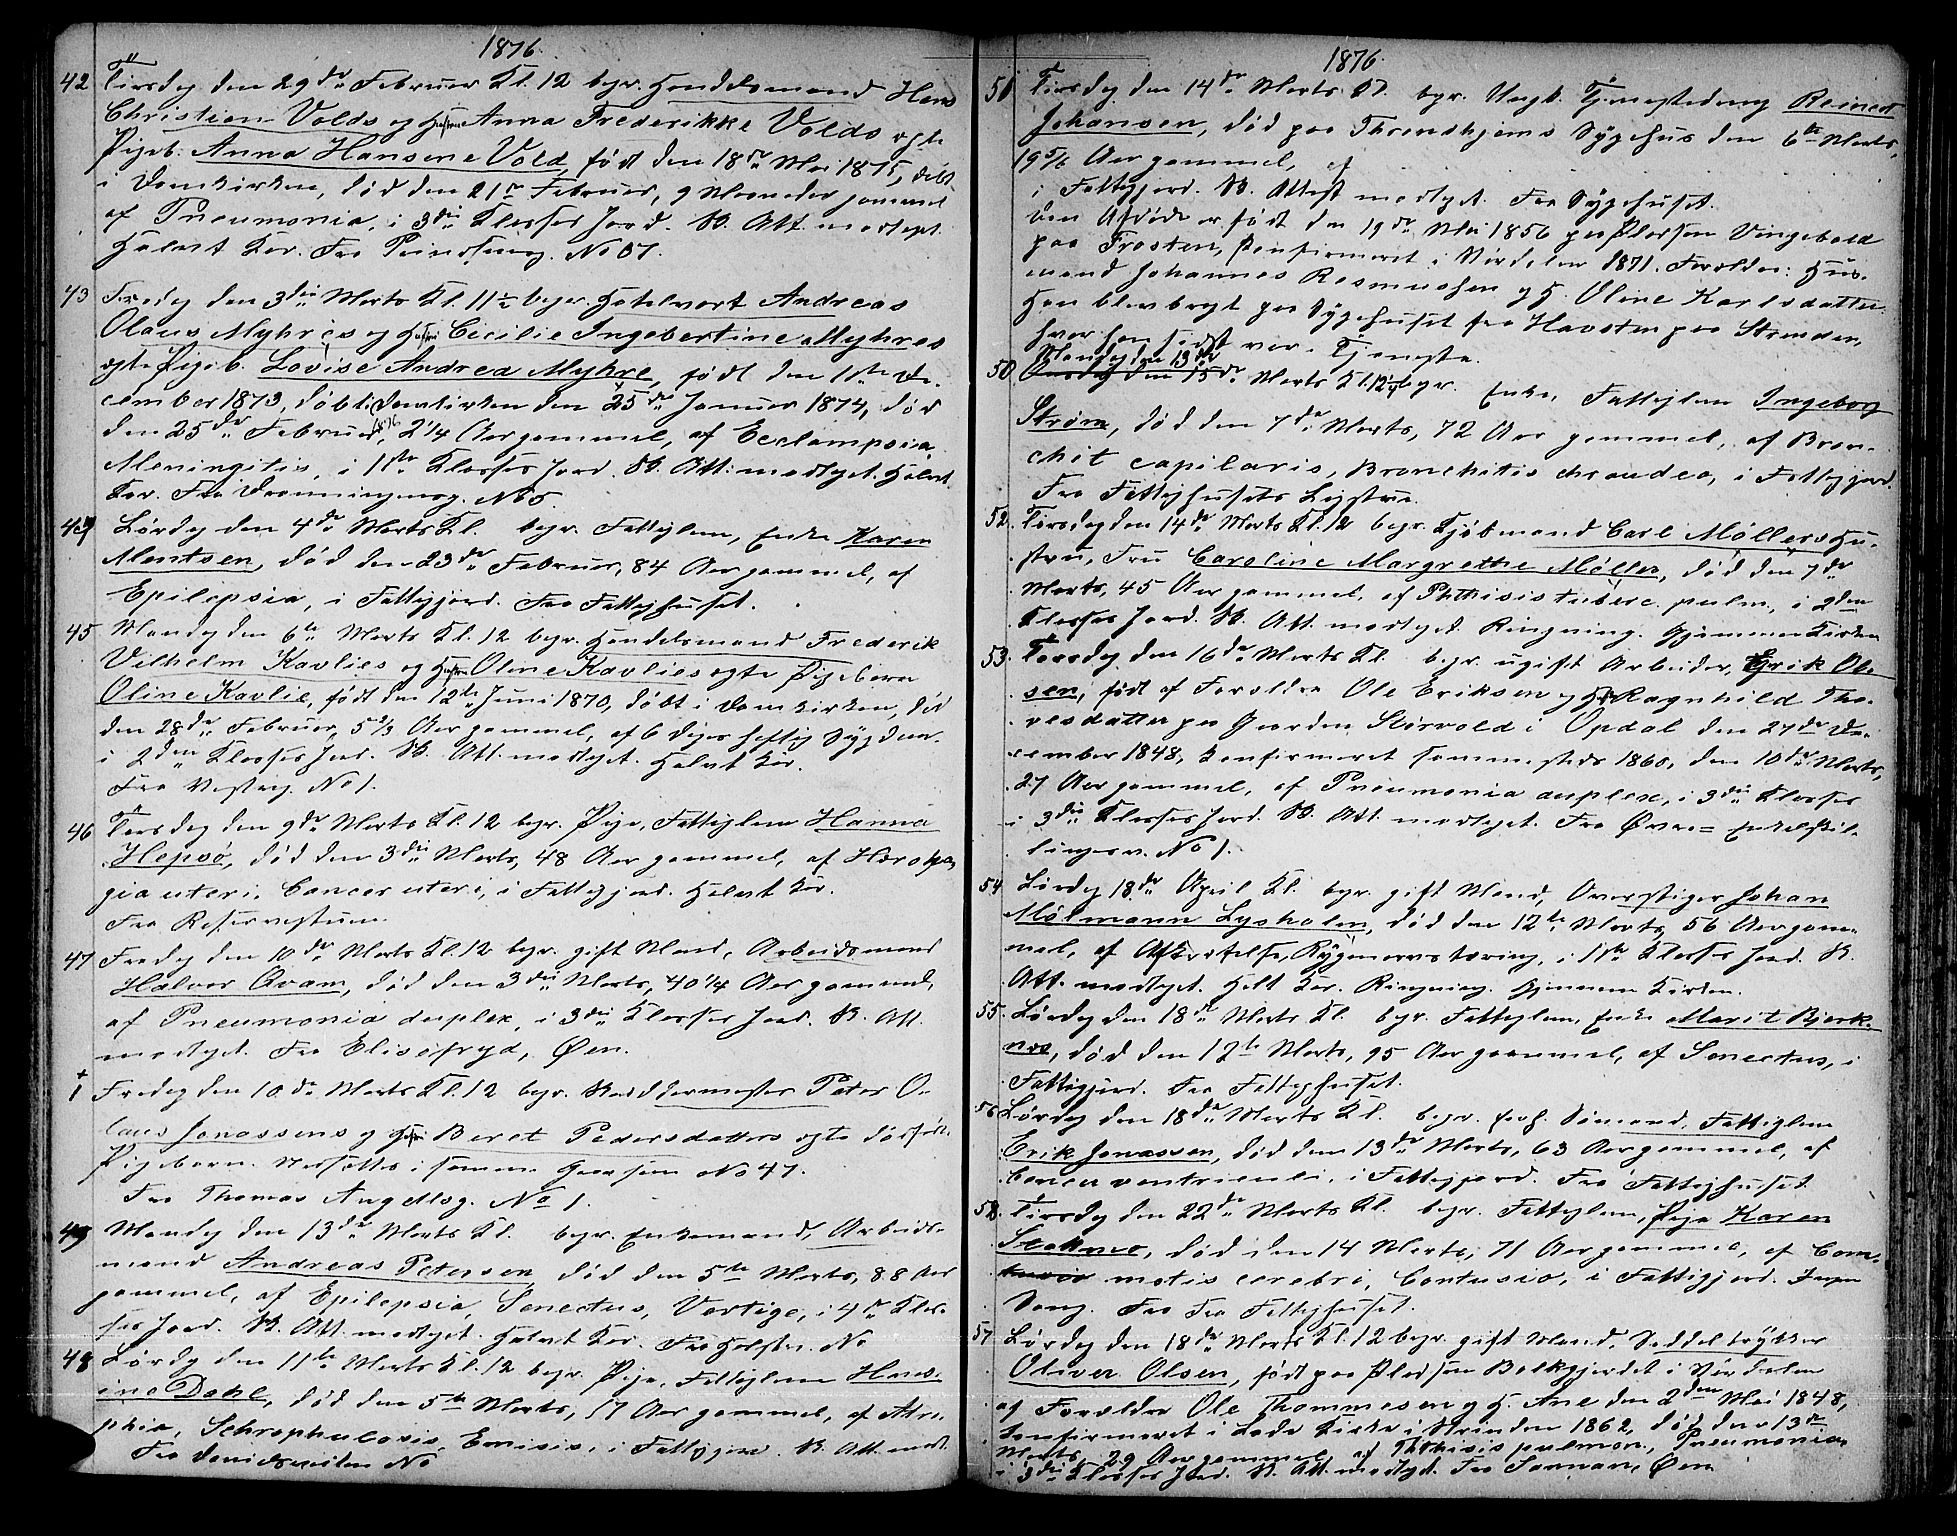 1876.
42 Tirsdag den 29de Februar Kl. 12 begr. Handelsmand Hans
Christian Volds og Hustru Anna Frederikke Volds ægte
Pigeb. Anna Hansine Vold, født den 18de Mai 1875, døbt
i Domkirken, død den 21de Februar, 9 Maaneder gammel
af Pneumonia, i 3die Klasses Jord. B. Att. modtaget.
Halvt Kor. Fra Prindsensg. No 57.
43 Fredag den 3die Marts Kl. 11½ begr. Hotelvært Andreas
Olaus Myhres og Hustru Cicilie Ingebertine Myhres
ægte Pigeb. Lovise Andrea Myhre, født den 11te De-
cember 1873, døbt i Domkirken den 25de Januar 1874, død
den 25de Februar 1876, 2 1/4 Aar gammel, af Eclampsia,
Meningitis, i 1ste Klasses Jord. B. Att. modtaget. Halvt
Kor. Fra Dronningensg. No 5.
44 Lørdag den 4de Marts Kl. begr. Fattiglem, Enke Karen
Mentsen, død den 23de Februar, 84 Aar gammel, af
Epilepsia, i Fattigjord. Fra Fattighuset.
45 Mandag den 6te Marts Kl. 12 begr. Handelsmand Frederik
Vilhelm Kavlies og Hustru Oline Kavlies ægte Pigebarn
Oline Kavlie, født den 12te Juni 1870, døbt i Domkirken, død
den 28de Februar, 5 2/3 Aar gammel, af 6 Dages heftig Sygdom.
i 2den Klasses Jord. B. Att. modtaget. Halvt Kor.
Fra Vesterg. No 1.
46 Torsdag den 9de Marts Kl. 12 begr. Pige, Fattiglem Hanna
Hepsø, død den 3die Marts, 48 Aar gammel, af
gia uteri, Cancer uteri, i Fattigjord. Halvt Kor.
Fra
47 Fredag den 10de Marts Kl. 12 begr. gift Mand, Arbeidsmand
Halvor Qvam, død den 3die Marts, 40 1/4 Aar gammel,
af Pneumonia duplex, i 3die Klasses Jord. B. Att.
modtaget. Fra Elisefryd, Øen.
1 Fredag den 10de Marts Kl. 12 begr. Skræddermester Peter O-
laus Jonassens og Hustru Beret Pedersdatters ægte dødfødt
Pigebarn. Nedsattes i samme Grav som No 47.
Fra Thomas Angellsg. No 1.
49 Mandag den 13de Marts Kl. begr. Enkemand, Arbeids-
mand Andreas Petersen, død den 5te Marts, 88 Aar
gammel, af Epilepsia, Senectus, Vertigo, i 4de Klas-
ses Jord. B. Att. modtaget. Halvt Kor. No
48 Lørdag den 11te Marts Kl. 12 begr. Pige, Fattiglem Hans-
ine Dahl, død den 5te Marts, 17 Aar gammel, af Atro-
phia, Schrophulosis, i Fattigjord. B. Att. modt.
Fra No
1876.
51 Tirsdag den 14de Marts Kl. begr. Ungk. Tjenestedreng Reinert
Johansen, død paa Throndhjems Sygehus den 6te Marts,
19 5/6 Aar gammel, af
i Fattigjord. B. Attest modtaget. Fra Sygehuset.
Den Afdøde er født den 19de Mai 1856 paa Pladsen Vingebold
paa Frosten, konfirmeret i Værdalen 1871. Forældre: Hus-
mand Johannes Rasmussen og H. Oline Karlsdatter
Han blev bragt paa Sygehuset fra Havsten paa Strinden
hvor han sidst var i Tjeneste.
Mandag den 13de
50 Onsdag den 15de Marts Kl. 12½ begr. Enke, Fattiglem Ingeborg
Strøm, død den 7de Marts, 72 Aar gammel, af Bron-
chit capilaris, Bronchitis chronica, i Fattigjord.
Fra Fattighusets
52. Tirsdag den 14de Marts Kl. 12 begr. Kjøbmand Carl Møllers Hu-
stru, Fru Caroline Margrethe Møller, død den 7de
Marts, 45 Aar gammel, af Phthisis tuberc. pulm., i 2den
Klasses Jord. B. Att. modtaget. Ringning. Gjennem Kirken
53. Torsdag den 16de Marts Kl. begr. ugift Arbeider, Erik Ol-
sen, født af Forældre Ole Eriksen og H. Ragnhild Tho-
resdatter paa Gaarden Størvold i Opdal den 27de De-
cember 1848, konfirmeret sammesteds 1860, den 10de Marts,
27 Aar gammel, af Pneumonia duplex, i 3die Klasses
i 3die Klasses Jord. B. Att. modtaget. Fra Øvre= Enkelskil-
lingsv. No 1.
54 Lørdag 18de April Kl. begr. gift Mand, Overstiger Johan
Mølmann Lysholm, død den 12te Marts, 56 Aar gam-
mel, af Afkræftelse, Rygmarvstæring, i 1ste Klasses Jord. B.
Att. modtaget. Helt Kor. Ringning. Gjennem Kirken.
55. Lørdag den 18de Marts Kl. begr. Fattiglem, Enke Marit Bjerk-
næs, død den 12te Marts, 95 Aar gammel, af Senectus, i
Fattigjord. Fra Fattighuset.
56 Lørdag den 18de Marts Kl. begr. Sømand, Fattiglem
Erik Jonassen, død den 13de Marts, 63 Aar gammel, af
Cancer ventriculi, i Fattigjord. Fra Fattighuset
58. Tirsdag den 22de Marts Kl. begr. Fattiglem, Pige Karen
død den 14 Marts, 71 Aar gammel, af Com-
motis cerebri, Contusio, i Fattigjord. Ingen
Sang. Fra Fra Fattighuset.
57 Lørdag den 18de Marts Kl. 12 begr. gift Mand, Seddeltrykker
Oliver Olsen, født paa Pladsen Balkgjerdet i Værdalen
af Forældre Ole Thommesen og H. Ane den 2den Mai 1848,
konfirmeret i Lade Kirke i Strinden 1862, død den 13de
Marts, 29 Aar gammel, af Phthisis pulmon., Pneumonia
i 3die Klasses Jord. B. Att. modtaget. Fra Sannan, Øen